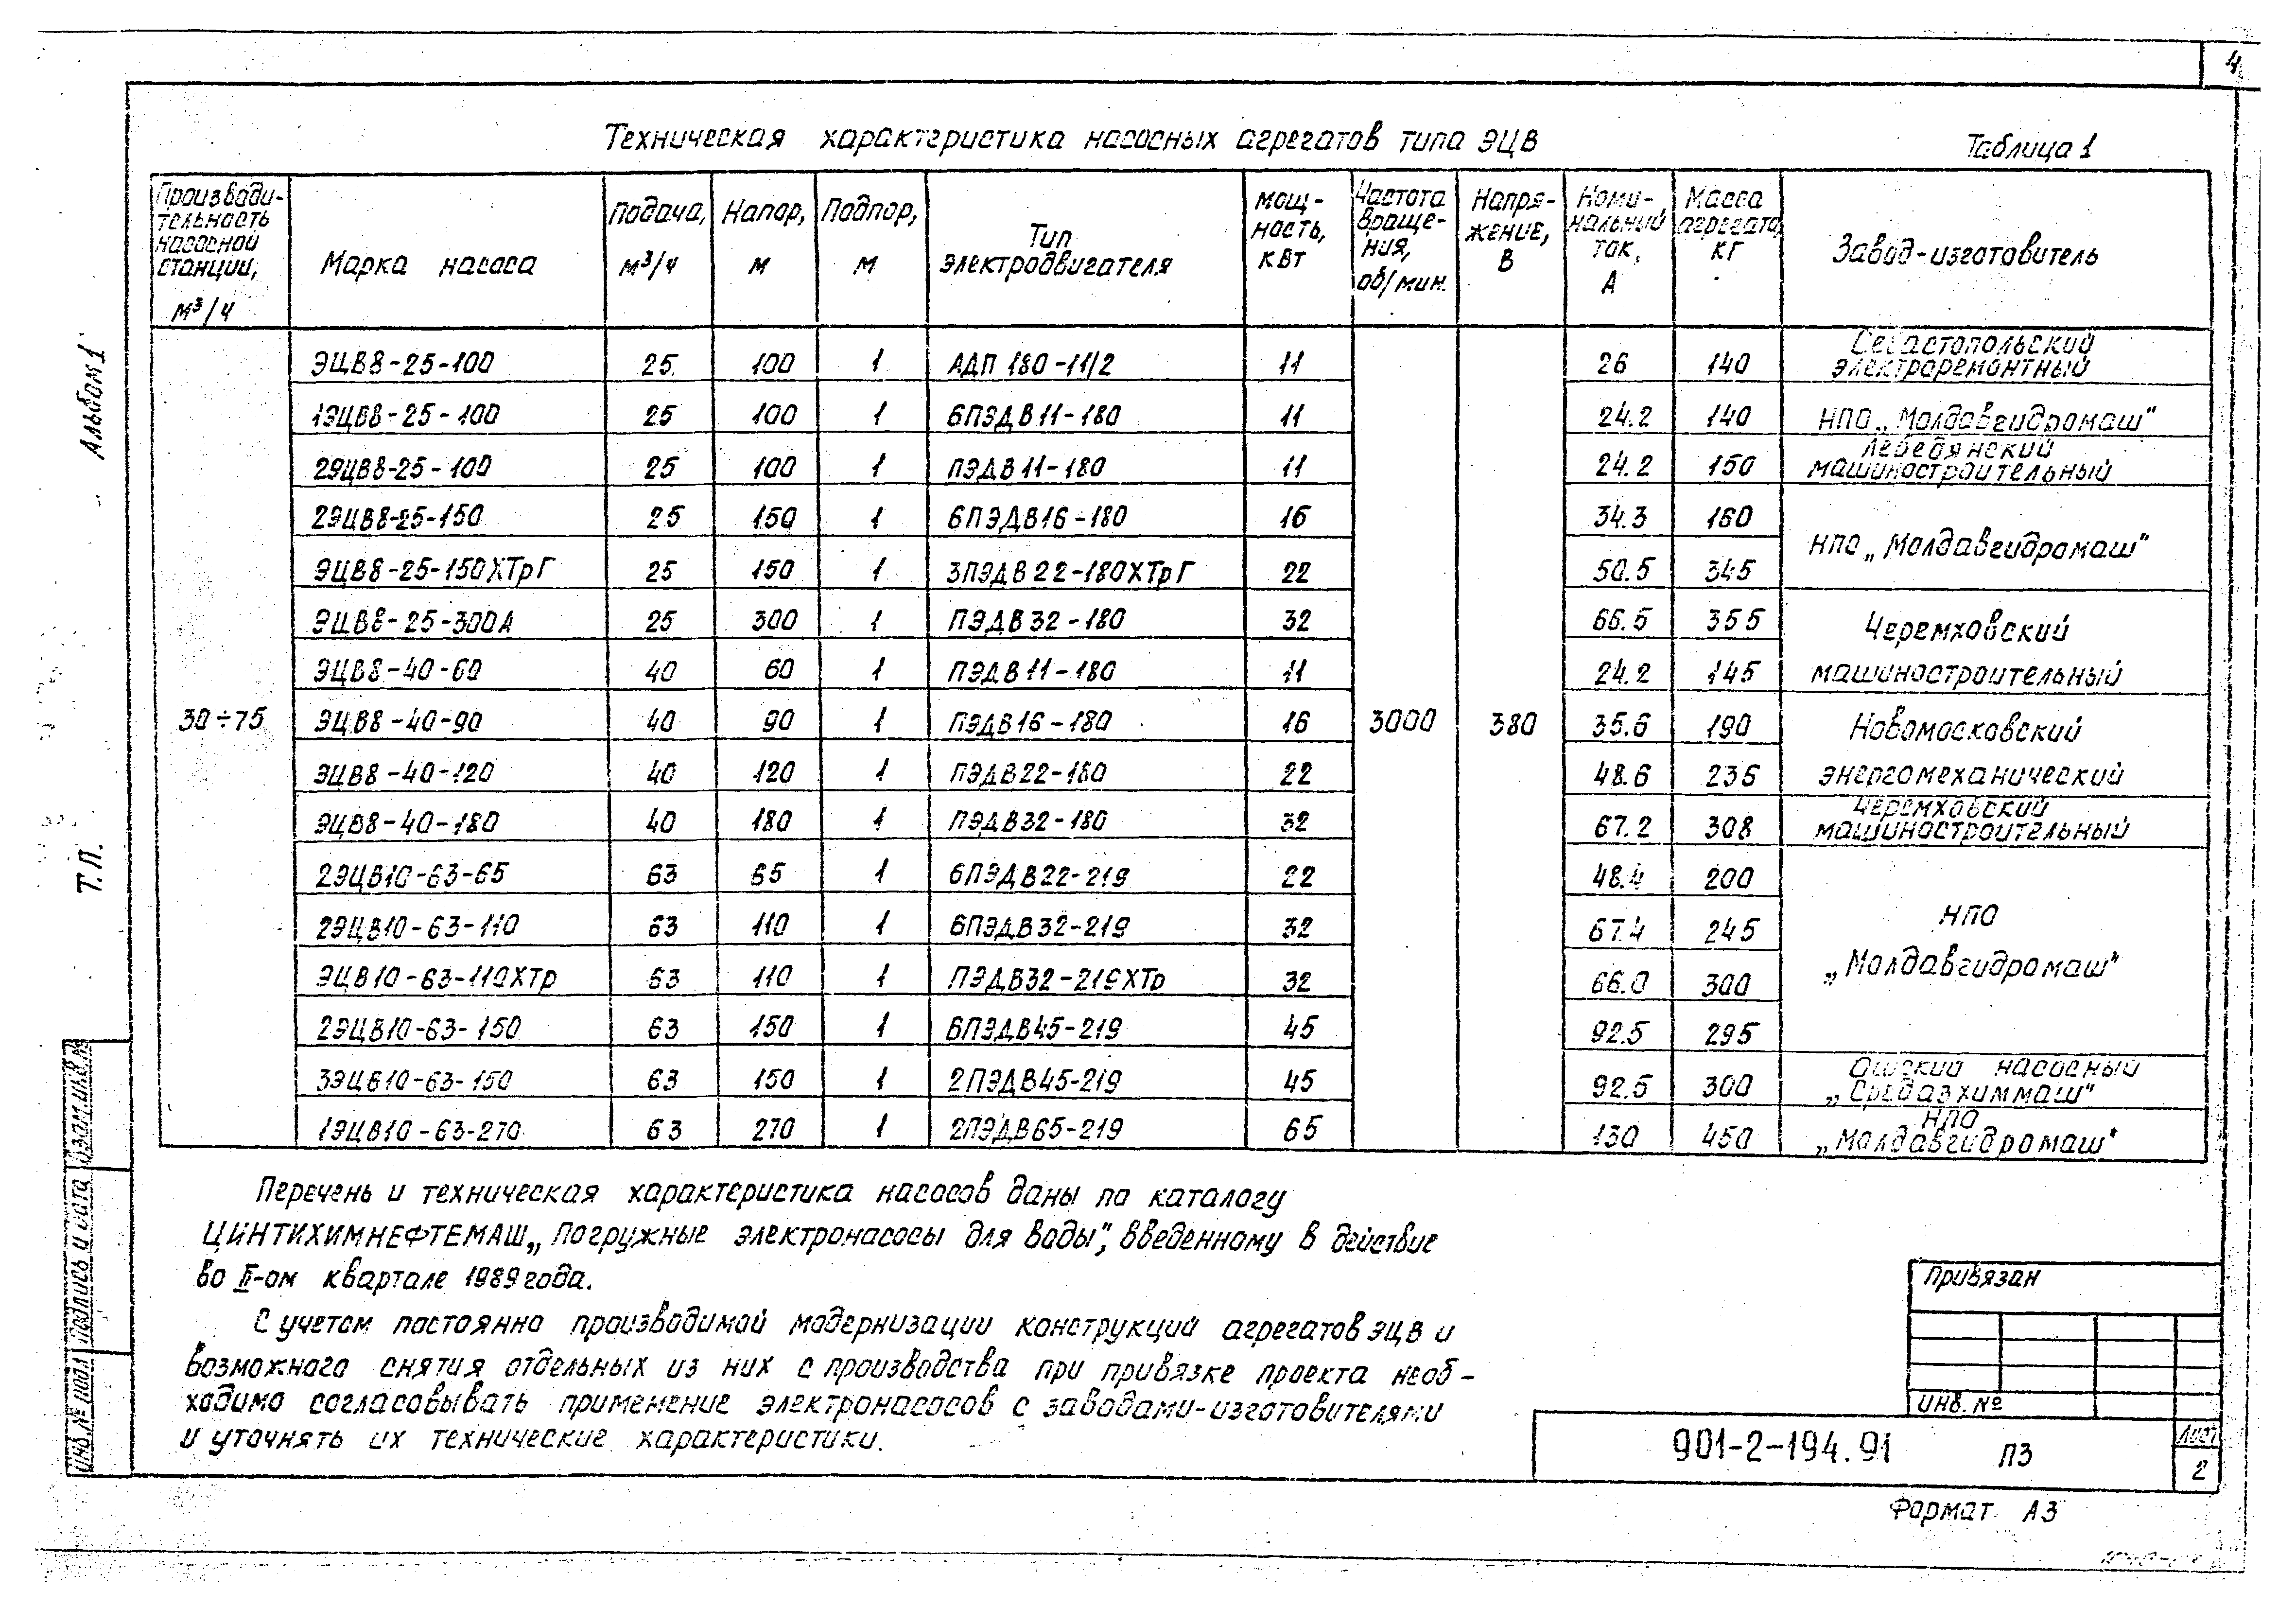 4
Техническая характеристика насосных агрегатов типа ЭЦВ
Таблица 1
Производительность насосной станции, м³/ч | Марка насоса | Подача, м³/ч | Напор, м | Подпор, м | Тип электродвигателя | Мощность, кВт | Частота вращения, об/мин. | Напряжение, В | Номинальный ток, А | Масса агрегата, кг | Завод-изготовитель
ЭЦВ8-25-100 25 100 1 АДП 180-11/2 11 26 140 Севастопольский электроремонтный
1ЭЦВ8-25-100 25 100 1 6ПЭДВ11-180 11 24.2 140 НПО „Молдавгидромаш"
2ЭЦВ8-25-100 25 100 1 ПЭДВ11-180 11 24.2 150 Лебедянский машиностроительный
2ЭЦВ8-25-150 25 150 1 6ПЭДВ16-180 16 34.3 160 НПО „Молдавгидромаш"
ЭЦВ8-25-150ХТрГ 25 150 1 3ПЭДВ22-180ХТрГ 22 50.5 345
ЭЦВ8-25-300А 25 300 1 ПЭДВ32-180 32 66.5 355 Черемховский
ЭЦВ8-40-60 40 60 1 ПЭДВ11-180 11 24.2 145 машиностроительный
30÷75 ЭЦВ8-40-90 40 90 1 ПЭДВ16-180 16 3000 380 35.6 190 Новомосковский
ЭЦВ8-40-120 40 120 1 ПЭДВ22-180 22 48.6 236 энергомеханический
ЭЦВ8-40-180 40 180 1 ПЭДВ32-180 32 67.2 308 Черемховский машиностроительный
2ЭЦВ10-63-65 63 65 1 6ПЭДВ22-219 22 48.4 200
2ЭЦВ10-63-110 63 110 1 6ПЭДВ32-219 32 67.4 245 НПО
ЭЦВ10-63-110ХТр 63 110 1 ПЭДВ32-219ХТр 32 66.0 300 „Молдавгидромаш"
2ЭЦВ10-63-150 63 150 1 6ПЭДВ45-219 45 92.5 295
3ЭЦВ10-63-150 63 150 1 2ПЭДВ45-219 45 92.5 300 Ошский насосный „Средазхиммаш"
1ЭЦВ10-63-270 63 270 1 2ПЭДВ65-219 65 130 450 НПО „Молдавгидромаш"
Перечень и техническая характеристика насосов даны по каталогу
ЦИНТИХИМНЕФТЕМАШ „Погружные электронасосы для воды", введенному в действие
во II-ом квартале 1989 года.
С учетом постоянно производимой модернизации конструкций агрегатов ЭЦВ и
возможного снятия отдельных из них с производства при привязке проекта необ-
ходимо согласовывать применение электронасосов с заводами-изготовителями
и уточнять их технические характеристики.
Привязан
Инв. №
901-2-194.91 ПЗ
Лист
2
Формат А3
Альбом 1
Т.П.
Взам.инв.№
Подпись и дата
Инв.№ подл